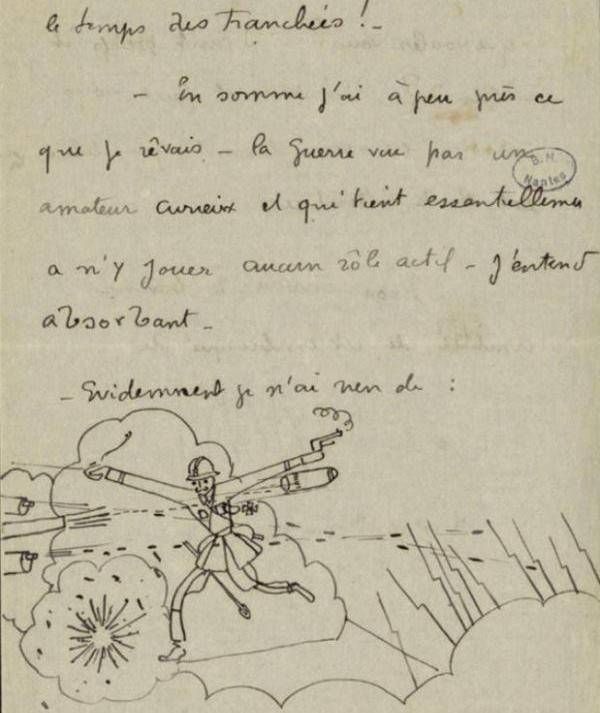 le temps des tranchées ! -
- En somme j'ai à peu près ce
que je rêvais - la guerre vue par un
B. M.
Nantes
amateur curieux et qui tient essentielleme
a n'y jouer aucun rôle actif - J'entend
absorbant -
- Evidemment je n'ai rien de :